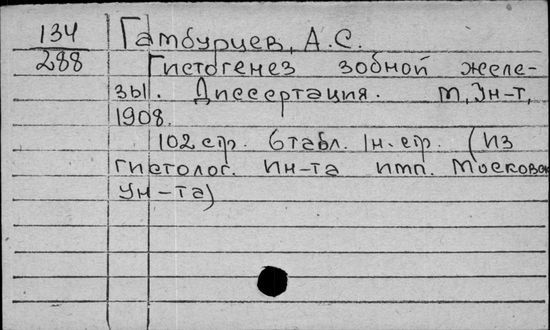 134
288
Гамбурцев, А.С.
Гистогенез зобной желе-
зы. Диссертация. М, Ун-т,
1908.
102 стр. 6 табл. 1н. стр. (Из
гистолог. Ин-та имп. Московск
Ун-та)